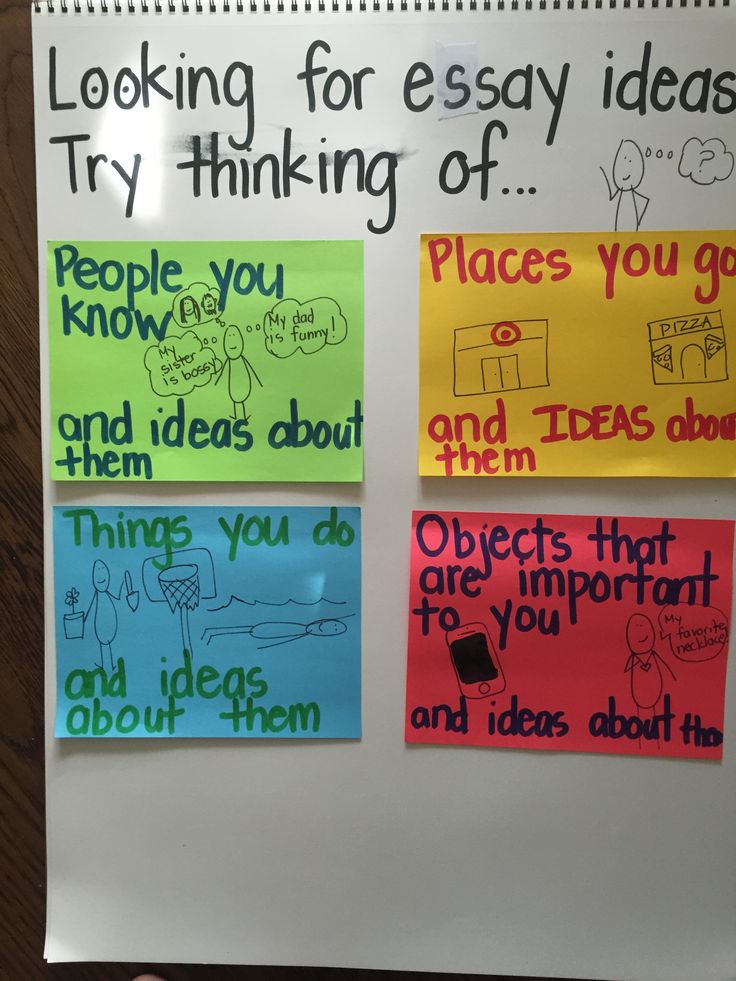 Looking for essay ideas
Try thinking of...
?
People you
know
My dad
is funny!
My
sister
is bossy
and ideas about
them
Places you go
PIZZA
and IDEAS about
them
Things you do
and ideas
about them
Objects that
are important
to you
My
favorite
necklace!
and ideas about them